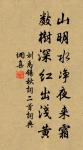 山明水凈夜來霜
數樹深紅出淺黃
劉禹錫秋詞二首詞典
網喜